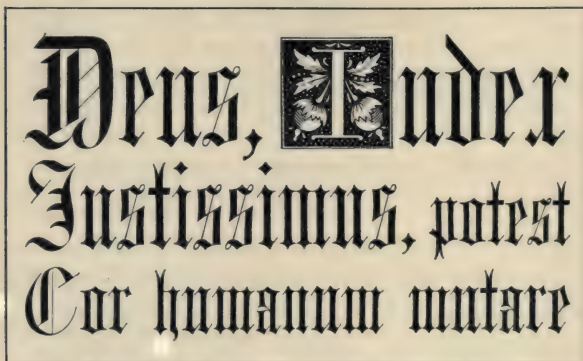 Deus, Iudex
Justissimus, potest
Cor humanum mutare